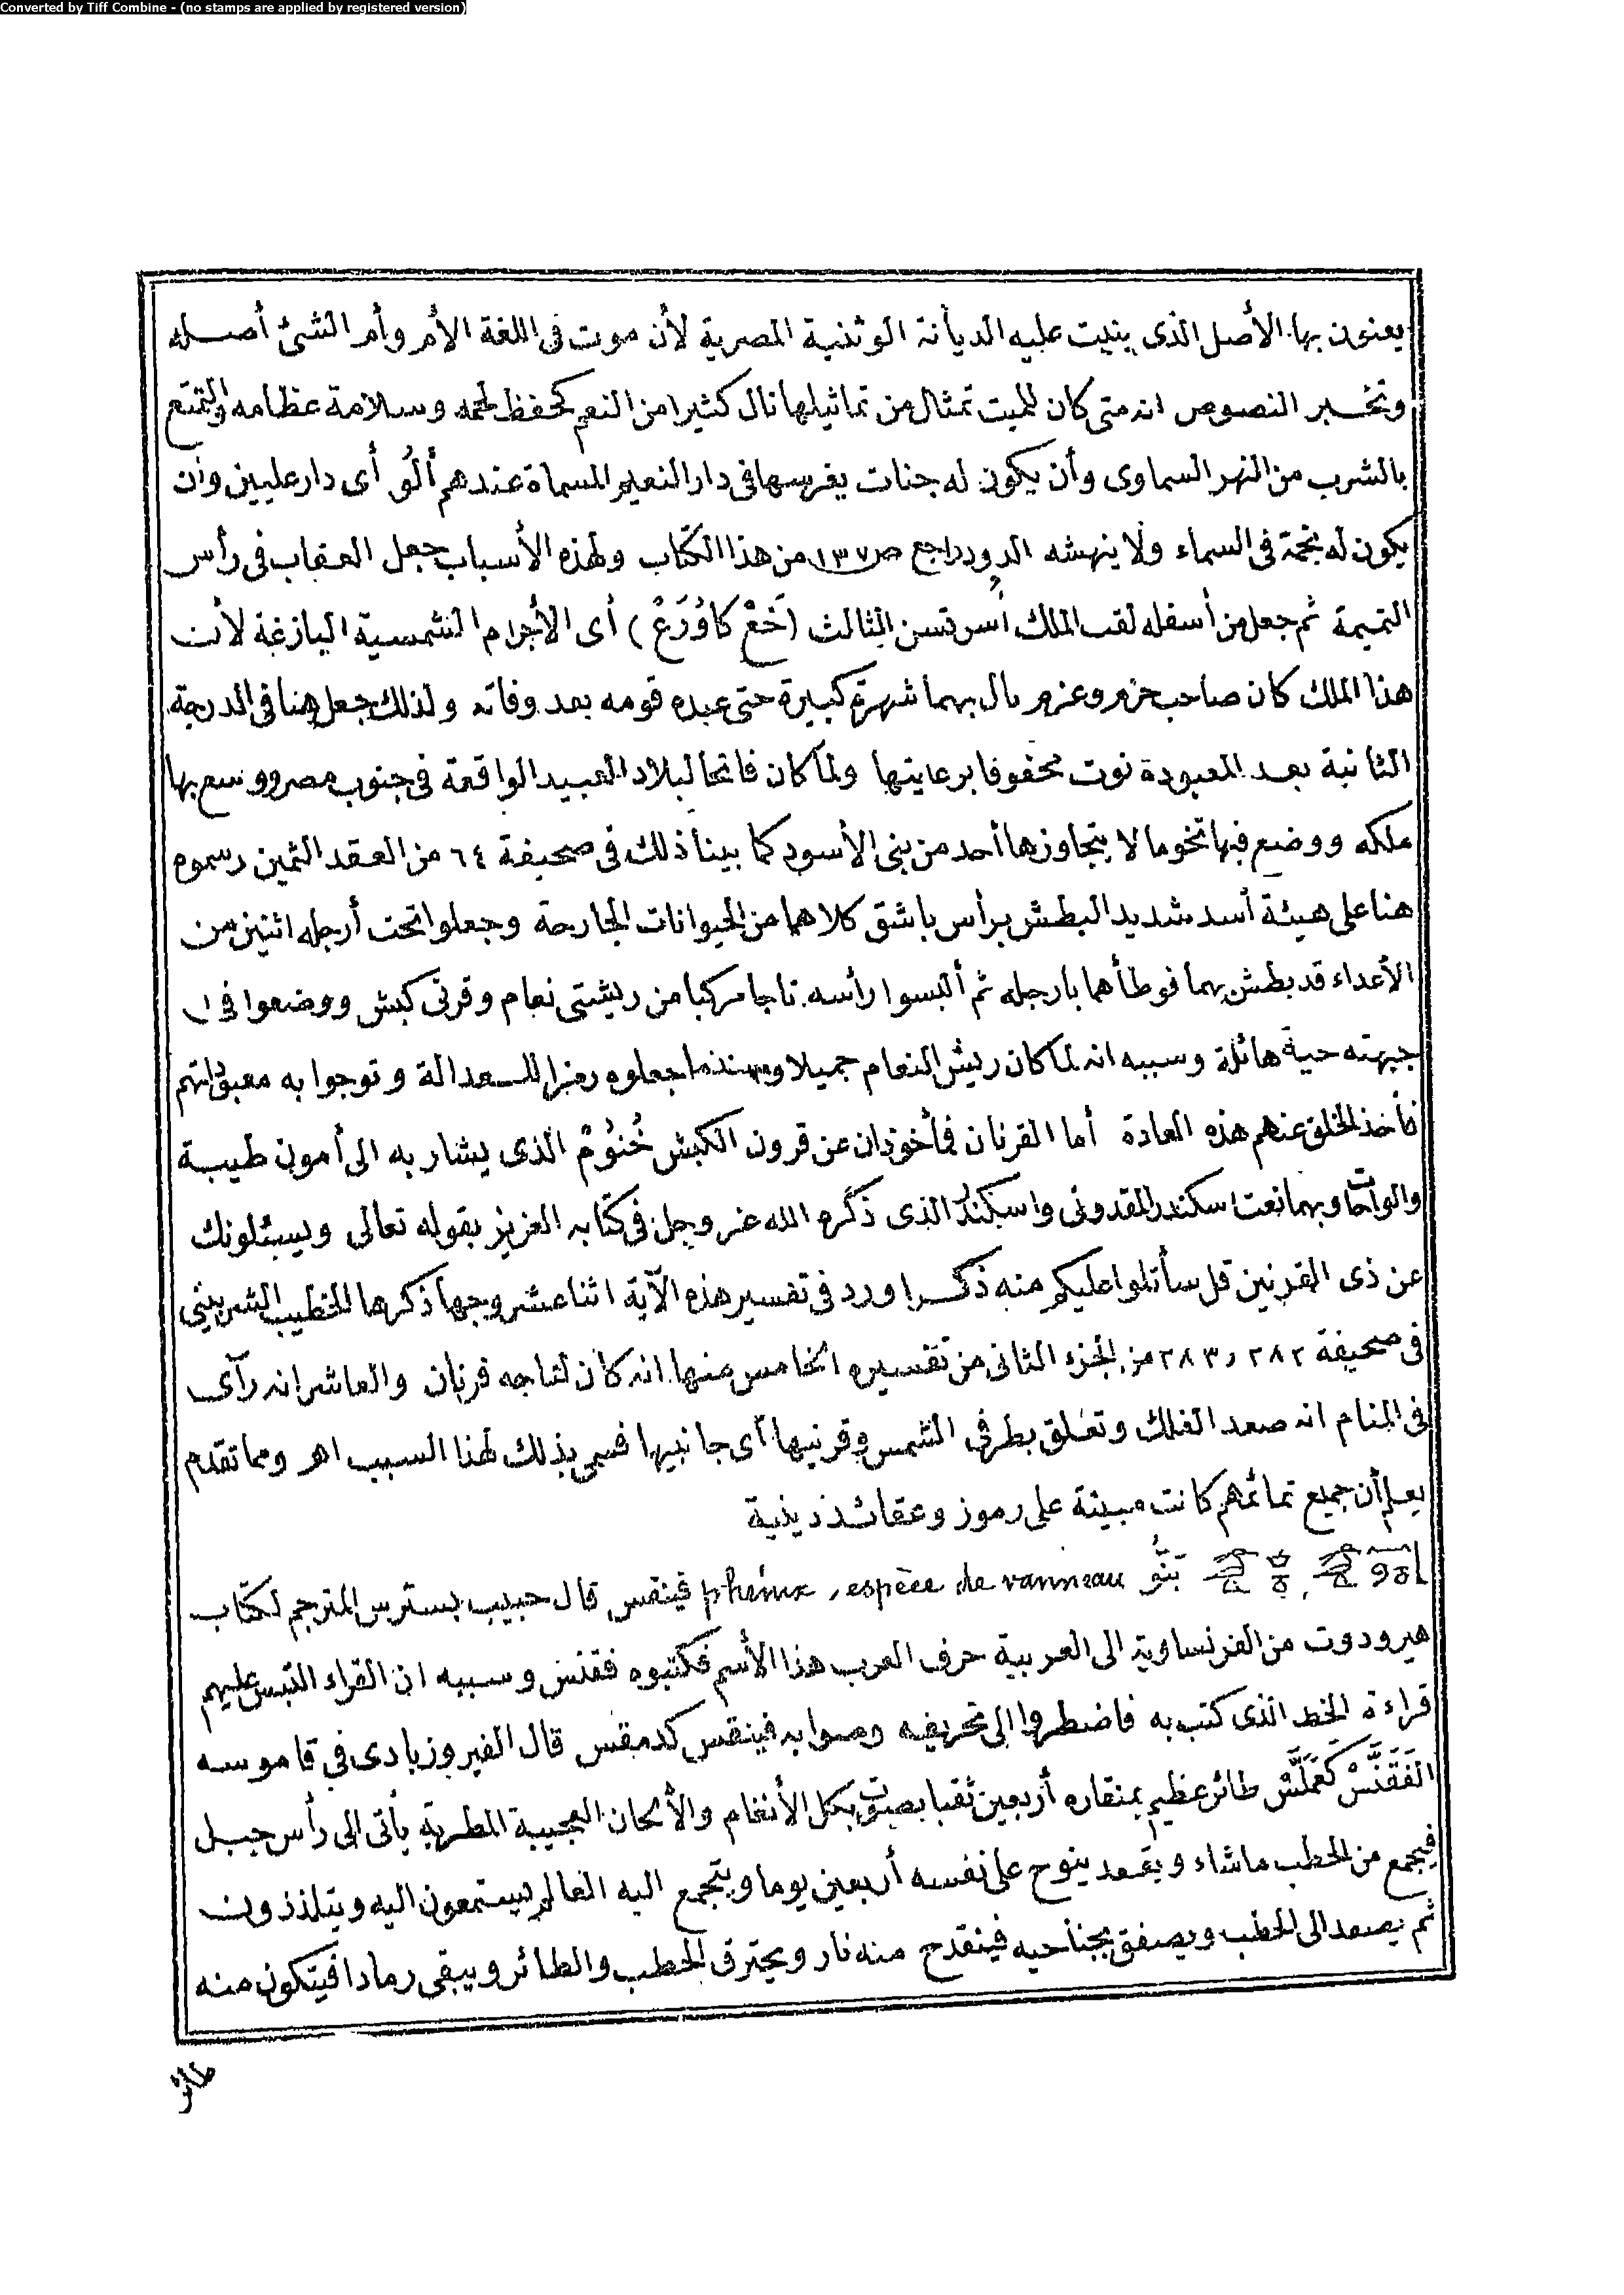 Converted by Tiff Combine - (no stamps are applied by registered version)
يعنون بها الأصل الذى بنيت عليه الديانة الوثنية المصرية لأن موت فى اللغة الأم وأم الشئ أصله
وتخبر النصوص انه متى كان للميت تمثال من تماثيلها نال كثيرا من النعم كحفظ لحمه وسلامة عظامه والتمتع
بالشرب من النهر السماوى وأن يكون له جنات يغرسها فى دار النعيم المسماة عندهم أَلُو أى دار عليين وأن
يكون له نجمة فى السماء ولا ينهشه الدود راجع ص ١٣٧ من هذا الكتاب ولهذه الأسباب جعل العقاب فى رأس
التميمة ثم جعل من أسفله لقب الملك أسرتسن الثالث (خَعْ كاوُرَعْ) أى الأجرام الشمسية البازغة لأن
هذا الملك كان صاحب حزم وعزم نال بهما شهرة كبيرة حتى عبده قومه بعد وفاته ولذلك جعل هنا فى الدرجة
الثانية بعد المعبودة نوت محفوفا برعايتها ولما كان فاتحا لبلاد العبيد الواقعة فى جنوب مصر ووسع بها
ملكه ووضع فيها تخوما لا يتجاوزها أحد من بنى الأسود كما بينا ذلك فى صحيفة ٦٤ من العقد الثمين رسموه
هنا على هيئة أسد شديد البطش برأس باشق كلاهما من الحيوانات الجارحة وجعلوا تحت أرجله اثنين من
الأعداء قد بطش بهما فوطأهما بأرجله ثم ألبسوا رأسه تاجا مركبا من ريشتى نعام وقرنى كبش ووضعوا فى
جبهته حية هائلة وسببه انه لما كان ريش النعام جميلا جعلوه رمزا للعدالة وتوجوا به معبوداتهم
فأخذ الخلق عنهم هذه العادة أما القرنان فمأخوذان عن قرون الكبش خُنوُمْ الذى يشار به الى أمون طيبة
والواحات وبهما نعت اسكندر المقدونى واسكندر الذى ذكره الله عز وجل فى كتابه العزيز بقوله تعالى ويسئلونك
عن ذى القرنين قل سأتلوا عليكم منه ذكرا ورد فى تفسير هذه الآية اثنا عشر وجها ذكرها الخطيب الشربينى
فى صحيفة ٢٨٢ و ٢٨٣ من الجزء الثانى من تفسيره الخامس منها انه كان لتاجه قرنان والعاشر انه رآى
فى المنام انه صعد الفلك وتعلق بطرفى الشمس وقرنيها أى جانبيها فسمى بذلك لهذا السبب اهـ ومما تقدم
يعلم أن جميع تمائمهم كانت مبينة على رموز وعقائد دينية
بَنُّو phénix, espèce de vanneau فينقس قال حبيب بسترس المترجم لكتاب
هيرودوت من الفرنساوية الى العربية حرف العرب هذا الأسم فكتبوه ققنس وسببه ان القراء التبس عليهم
قراءة الخط الذى كتب به فاضطروا الى تحريفه وصوابه فينقس كدمقس قال الفيروزبادى فى قاموسه
الفَقَنَّسْ كَعَمَلَّسْ طائر عظيم بمنقاره أربعين ثقبا يصوت بكل الأنغام والألحان العجيبة المطربة يأتى الى رأس جبل
فيجمع من الحطب ماشاء ويقعد ينوح على نفسه أربعين يوما ويتجمع اليه العالم يستمعون اليه ويتلذذون
ثم يصعد الى الحطب ويصفق بجناحيه فينقدح منه نار ويحترق الحطب والطائر ويبقى رمادا فيتكون منه
طائر